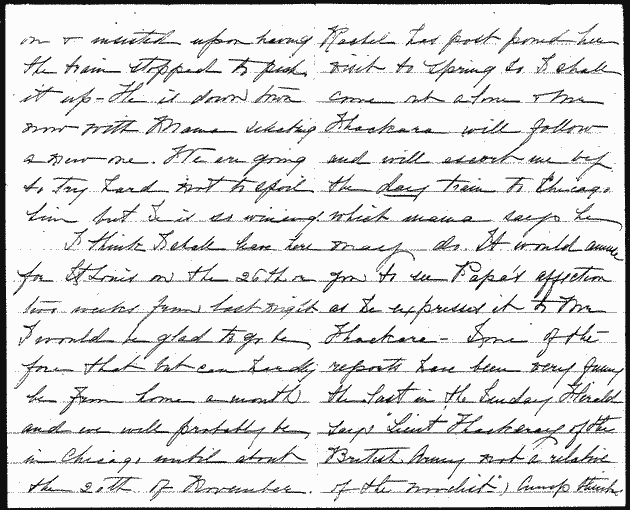 on & insisted upon having
the train stopped to pick
it up - He is down town
now with Mama selecting
a new one. We are going
to try hard not to spoil
him but he is so winning.
I think I shall leave here
for St Louis on the 26th or
two weeks from last night
I would be glad to go be
fore that but can hardly
be from home a month
and we will probably be
in Chicago until about
the 20th of November.
Rachel has post poned her
visit to Spring so I shall
come out alone & Mr
Thackara will follow
and will escort me by
the day train to Chicago
which mama says he
may do. It would amuse
you to see Papa's affection
as he expresses it to Mr
Thackara - Some of the
reports have been very funny
the last in the Sunday Herald
says "Lieut Thackaray of the
British Army not a relative
of the novelist"